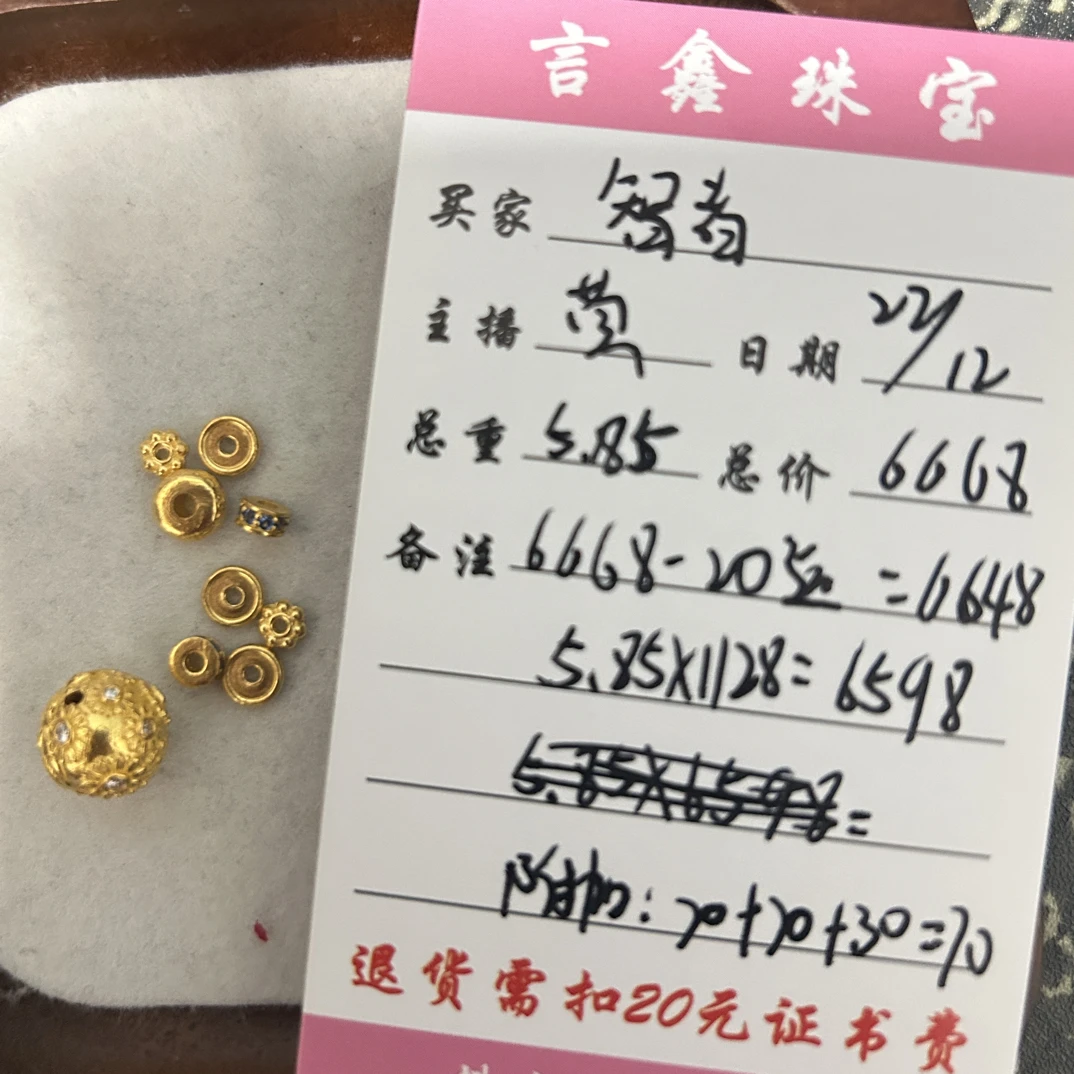 言鑫珠宝
买家 智者
主播 莹 日期 22/12
总重 5.85 总价 6668
备注 6668-20 = 6648
5.85X1128=6598
5.85X6598=
附加:20+20+30=70
退货需扣20元证书费